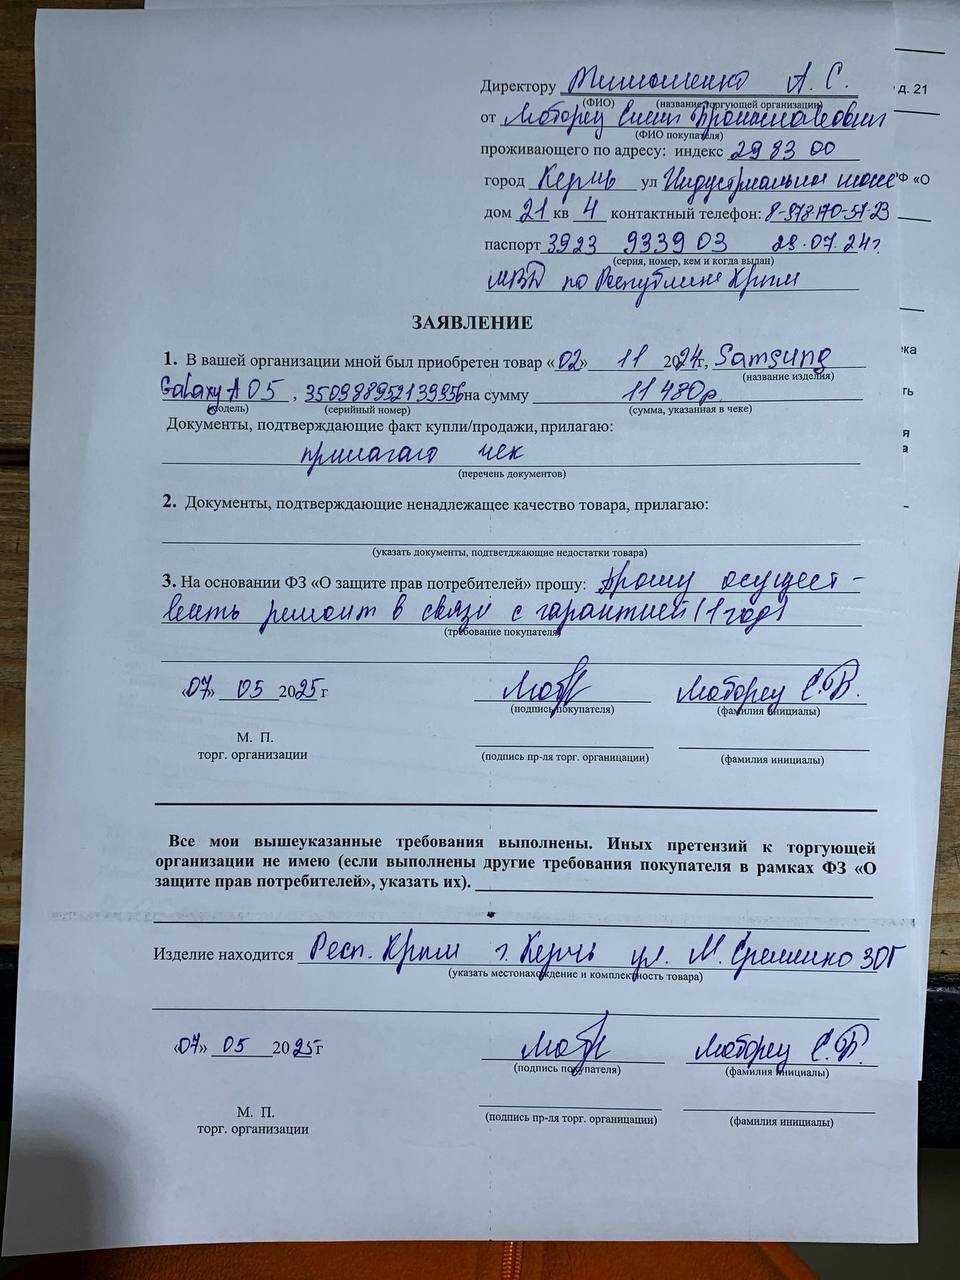 Директору Тимошенко А. С.
(ФИО) (название торгующей организации)
д. 21
от Моторец Брониславович
(ФИО покупателя)
проживающего по адресу: индекс 2983 00
город Керчь ул Индустриальное шоссе
Ф «О
дом 21 кв 4 контактный телефон: 8-978-170-51-23
паспорт 3923 933903 23.07.24г.
(серия, номер, кем и когда выдан)
МВД по Республике Крым
ЗАЯВЛЕНИЕ
1. В вашей организации мной был приобретен товар «02» 11 2024г, Samsung
(название изделия)
Galaxy A05, на сумму 11 480р.
(модель) (серийный номер) (сумма, указанная в чеке)
Документы, подтверждающие факт купли/продажи, прилагаю:
прилагаю чек
(перечень документов)
2. Документы, подтверждающие ненадлежащее качество товара, прилагаю:
(указать документы, подтветджающие недостатки товара)
3. На основании ФЗ «О защите прав потребителей» прошу: Прошу осущест-
вить ремонт в связи с гарантией (1 год)
(требование покупателя)
«07» 05 2025г Моторец С.Б.
(подпись покупателя) (фамилия инициалы)
М. П.
торг. организации (подпись пр-ля торг. органицации) (фамилия инициалы)
Все мои вышеуказанные требования выполнены. Иных претензий к торгующей
организации не имею (если выполнены другие требования покупателя в рамках ФЗ «О
защите прав потребителей», указать их).
Изделие находится Респ. Крым г. Керчь ул. М. Еременко 30Г
(указать местонахождение и комплектность товара)
«07» 05 2025г Моторец С.Б.
(подпись покупателя) (фамилия инициалы)
М. П.
торг. организации (подпись пр-ля торг. органицации) (фамилия инициалы)